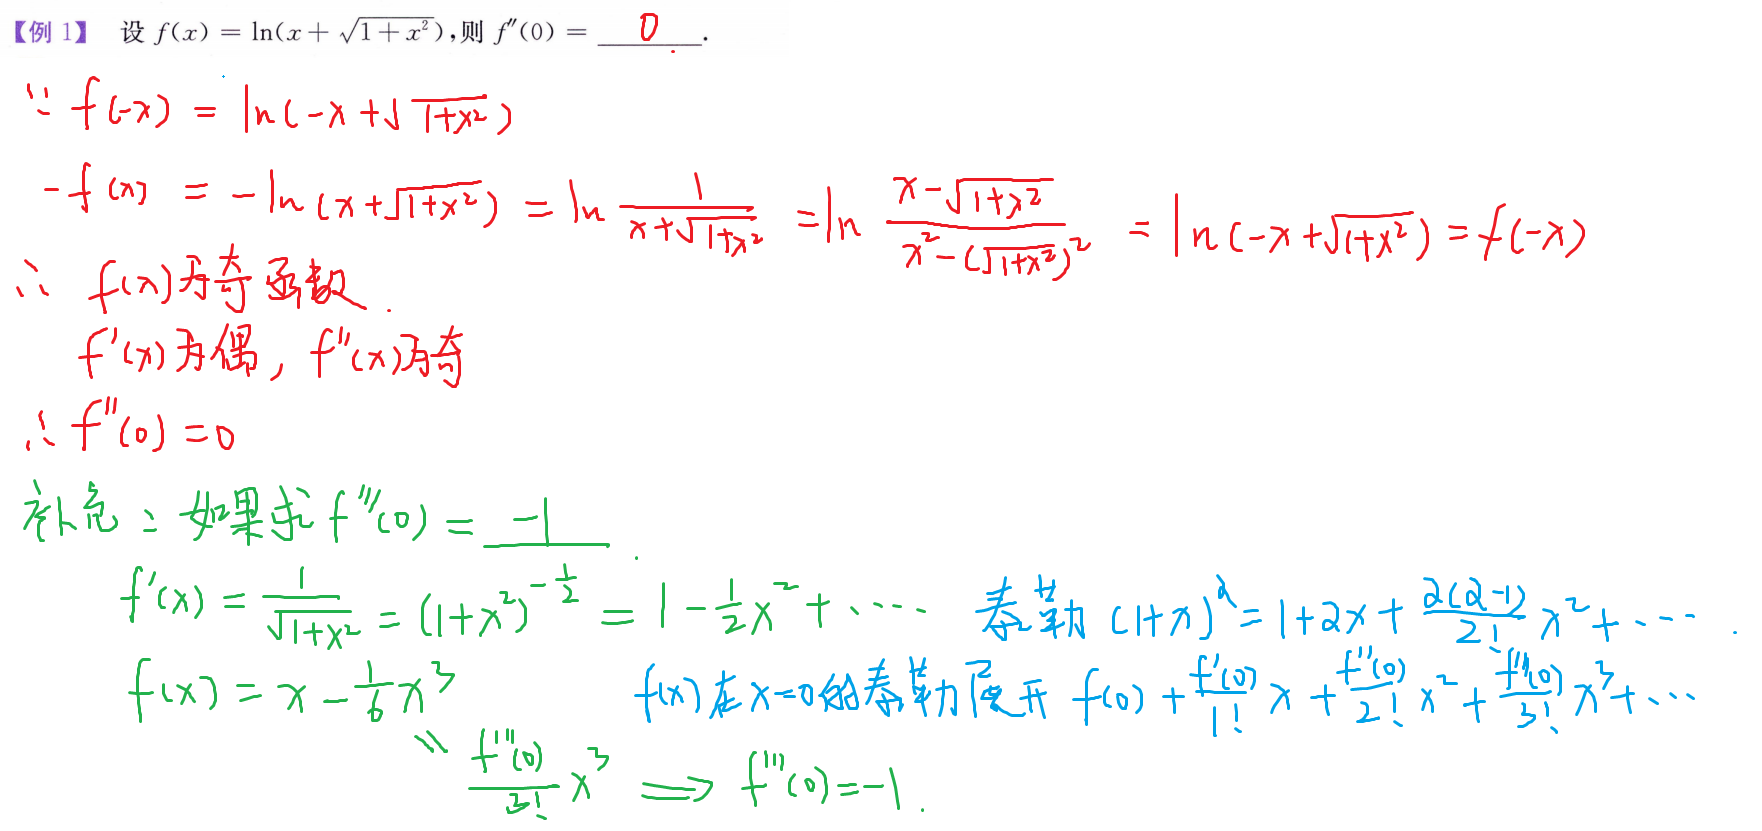 【例 1】 设 f(x) = ln(x + √(1 + x²)),则 f″(0) = 0 .
∵ f(-x) = ln(-x + √(1+x²))
-f(x) = -ln(x+√(1+x²)) = ln 1/(x+√(1+x²)) = ln (x-√(1+x²))/(x²-(√(1+x²))²) = ln(-x+√(1+x²)) = f(-x)
∴ f(x)为奇函数.
f'(x)为偶, f''(x)为奇
∴ f''(0) = 0
补充: 如果求 f'''(0) = -1 .
f'(x) = 1/√(1+x²) = (1+x²)^(-1/2) = 1 - 1/2 x² + ····  泰勒 (1+x)^α = 1+αx + α(α-1)/2! x² + ···.
f(x) = x - 1/6 x³  f(x)在x=0的泰勒展开 f(0) + f'(0)/1! x + f''(0)/2! x² + f'''(0)/3! x³ + ···
\\ f'''(0)/3! x³ ⟹ f'''(0) = -1 .